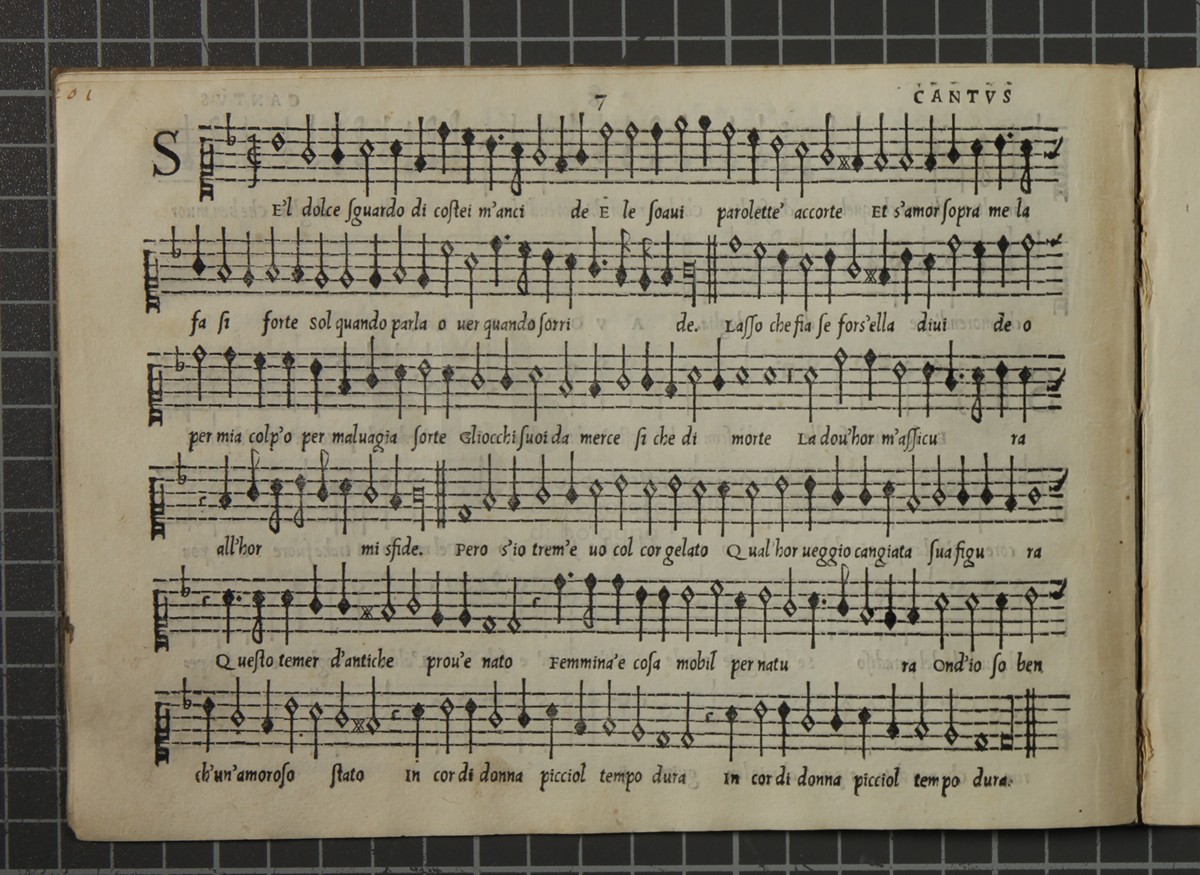 7 CANTVS
SE'l dolce ſguardo di coſtei m'anci de E le ſoaui parolette' accorte Et s'amor ſopra me la
fa ſi forte Sol quando parla o uer quando ſorri de. Laſſo che fia ſe forſ'ella diui de o
per mia colp'o per maluagia ſorte Gliocchi ſuoi da merce ſi che di morte La dou'hor m'aſſicu ra
all'hor mi sfide. Pero s'io trem'e uo col cor gelato Qual'hor ueggio cangiata ſua figu ra
Queſto temer d'antiche prou'e nato Femmina'e coſa mobil per natu ra Ond'io ſo ben
ch'un'amoroſo ſtato In cor di donna picciol tempo dura In cor di donna picciol tempo dura.